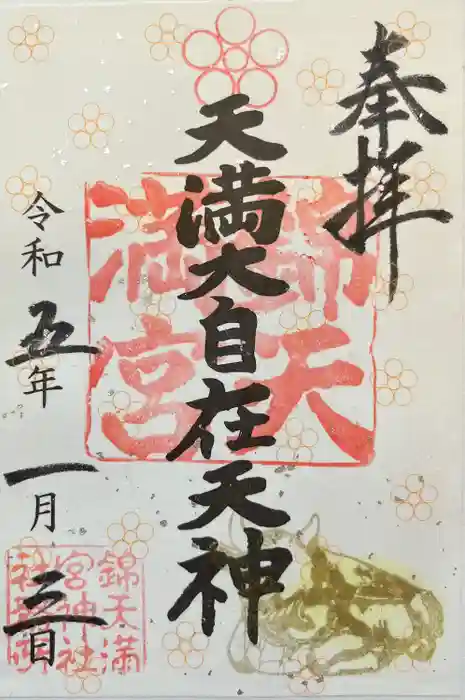 奉拝
天満大自在天神
錦天満宮
令和五年一月三日
錦天満
宮神社
社務所